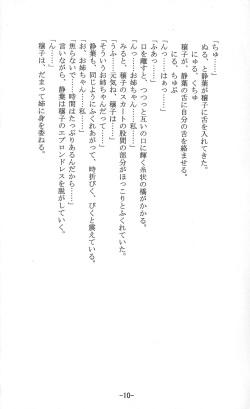 「ちゅ……」
ぬる、と静葉が穣子に舌を入れてきた。
にゅる、くちゅ
穣子が、静葉の舌に自分の舌を絡ませる。
にる、ちゅぷ
「んっ……はぁっ……」
「ふあっ……」
口を離すと、つつっと互いの口に輝く糸状の橋がかかる。
「んっ……お姉ちゃん……私……」
みると、穣子のスカートの股間の部分がぽっこりとふくれていた。
「うふふ……元気ね、穣子は……」
「そういうお姉ちゃんだって……」
静葉も、同じようにふくれあがって、時折びく、びくと震えている。
「お、お姉ちゃん……私……」
「焦らないで……時間はたっぷりあるんだから……」
言いながら、静葉は穣子のエプロンドレスを脱がしていく。
「ん……」
穣子は、だまって姉に身を委ねる。
-10-